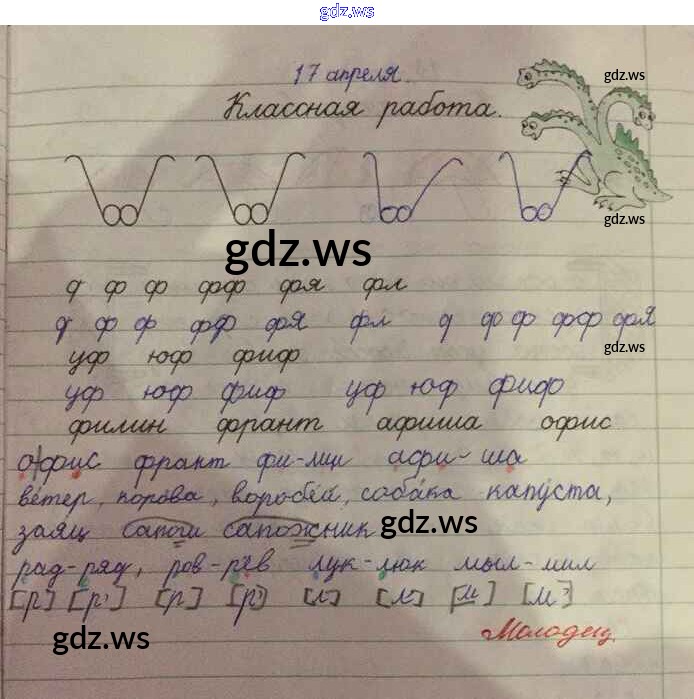 gdz.ws
17 апреля.
gdz.ws
Классная работа.
gdz.ws
gdz.ws
ф ф ф фф фя фл
ф ф ф фф фя фл ф ф ф фф фя
gdz.ws
уф юф фиф
уф юф фиф уф юф фиф
филин франт афиша офис
офис франт фи-лин афи-ша
ве́тер, коро́ва, воробе́й, соба́ка капу́ста,
заяц сапоги сапожник gdz.ws
рад-ряд, ров-рёв лук-люк мыл-мил
[р] [р'] [р] [р'] [л] [л'] [м] [м']
gdz.ws
Молодец.